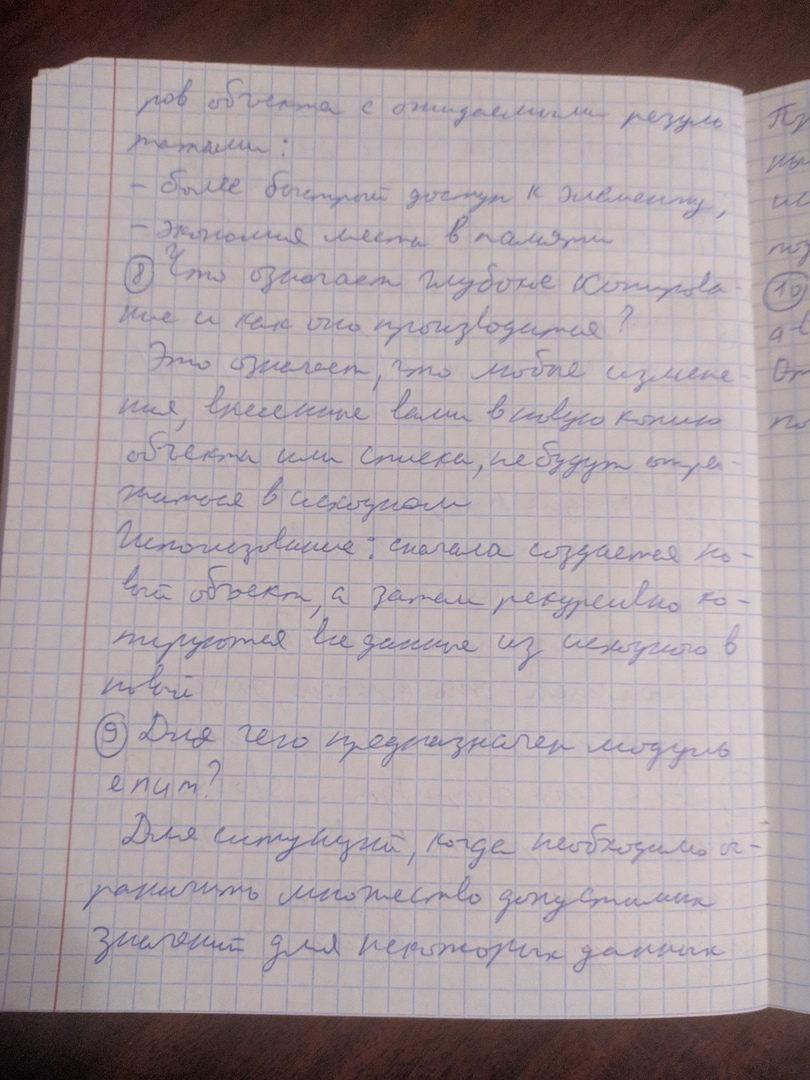 ров объекта с ожидаемыми резуль-
татами:
- более быстрый доступ к элементу;
- экономия места в памяти
⑧ Что означает глубокое копирова-
ние и как оно производится?
Это означает, что любые измене-
ния, внесенные вами в новую копию
объекта или списка, не будут отра-
жаться в исходном
Использование: сначала создается но-
вый объект, а затем рекурсивно ко-
пируются все данные из исходного в
новый
⑨ Для чего предназначен модуль
enum?
Для ситуаций, когда необходимо ог-
раничить множество допустимых
значений для некоторых данных
⑩